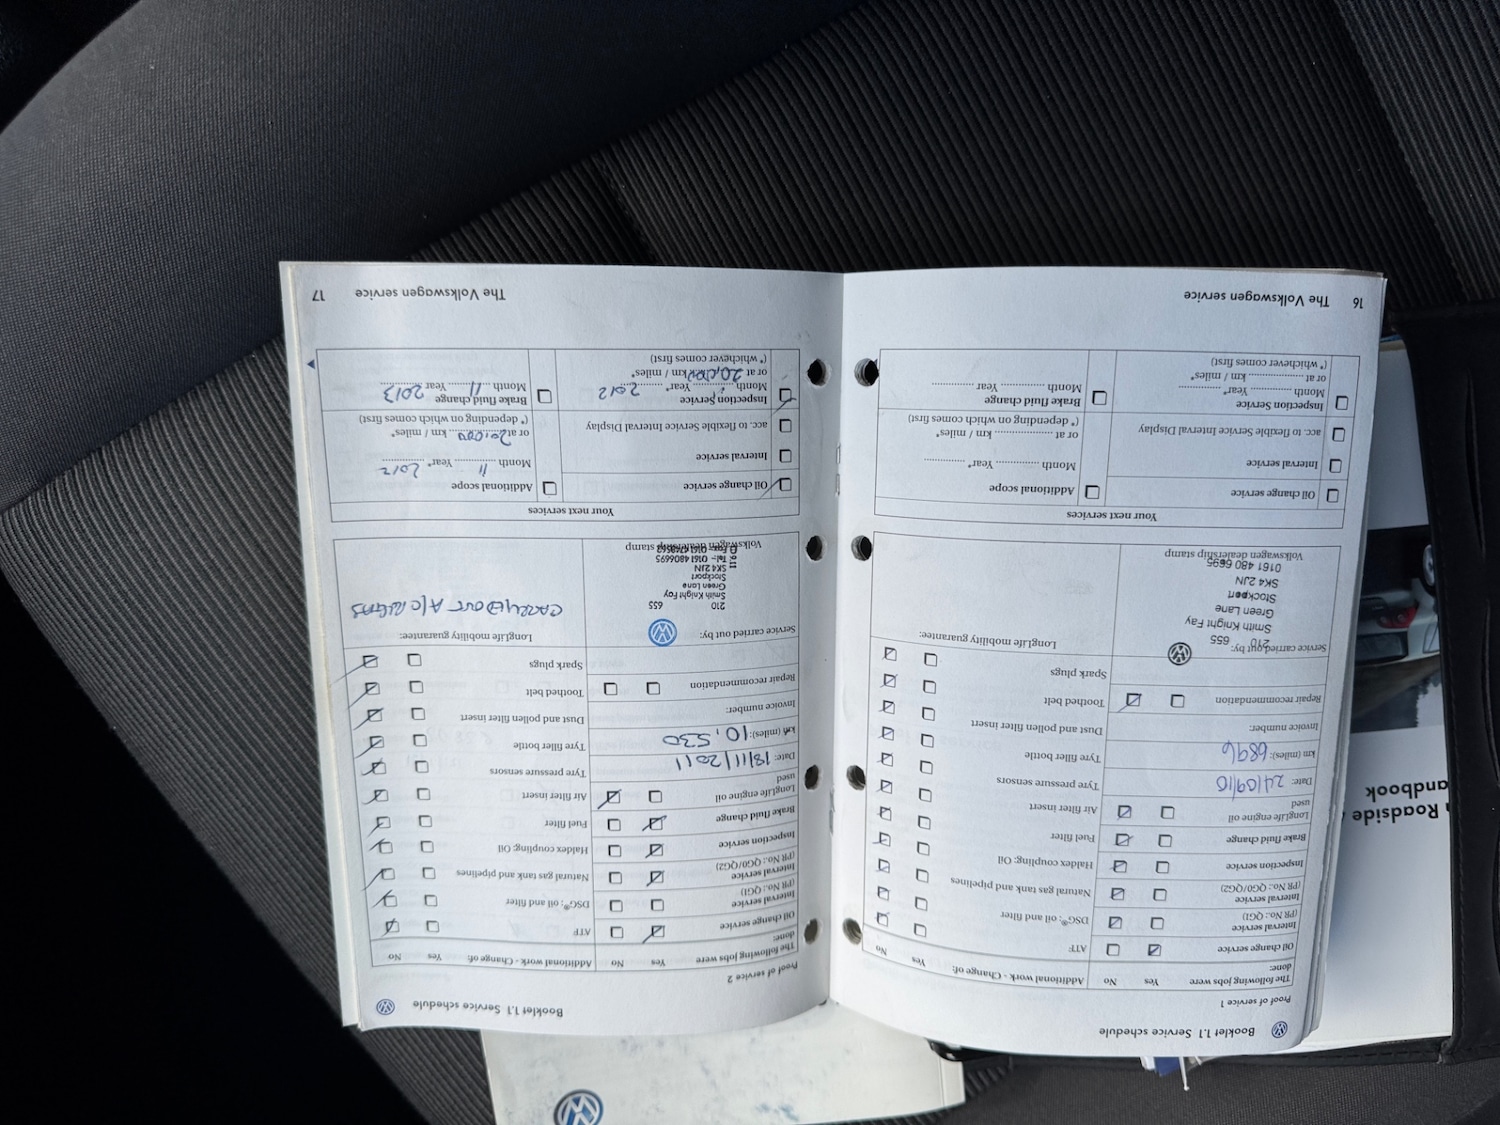 Booklet 1.1 Service schedule
Proof of service 1
The following jobs were done: Yes No
Oil change service
Interval service
(PR No.: QG1)
Interval service
(PR No.: QG0/QG2)
Inspection service
Brake fluid change
LongLife engine oil
used
Date: 24/09/10
km (miles): 6896
Invoice number:
Repair recommendation
Service carried out by:
210 655
Smith Knight Fay
Green Lane
Stockport
SK4 2JN
0161 480 6695
Volkswagen dealership stamp
Additional work - Change of: Yes No
ATF
DSG®; oil and filter
Natural gas tank and pipelines
Haldex coupling: Oil
Fuel filter
Air filter insert
Tyre pressure sensors
Tyre filler bottle
Dust and pollen filter insert
Toothed belt
Spark plugs
LongLife mobility guarantee:
Your next services
Oil change service
Interval service
acc. to flexible Service Interval Display
Inspection Service
Month ............ Year* ............
or at ............ km / miles*
(*whichever comes first)
Additional scope
Month ............ Year* ............
or at ............ km / miles*
(* depending on which comes first)
Brake fluid change
Month ............ Year ............
16 The Volkswagen service
Booklet 1.1 Service schedule
Proof of service 2
The following jobs were done: Yes No
Oil change service
Interval service
(PR No.: QG1)
Interval service
(PR No.: QG0/QG2)
Inspection service
Brake fluid change
LongLife engine oil
used
Date: 18/11/2011
km (miles): 10,530
Invoice number:
Repair recommendation
Service carried out by:
210 655
Smith Knight Fay
Green Lane
Stockport
SK4 2JN
Tel:- 0161 4806695
Volkswagen dealership stamp
Additional work - Change of: Yes No
ATF
DSG®; oil and filter
Natural gas tank and pipelines
Haldex coupling: Oil
Fuel filter
Air filter insert
Tyre pressure sensors
Tyre filler bottle
Dust and pollen filter insert
Toothed belt
Spark plugs
LongLife mobility guarantee:
CARRYED OUT A/C
Your next services
Oil change service
Interval service
acc. to flexible Service Interval Display
Inspection Service
Month ............ Year* 2012
or at 20,000 km / miles*
(*whichever comes first)
Additional scope
Month 11 Year* 2012
or at 20,000 km / miles*
(* depending on which comes first)
Brake fluid change
Month 11 Year 2013
The Volkswagen service 17
Roadside
andbook